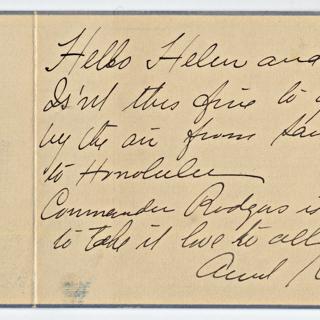 Hello Helen and
Isn't this fine to
by the air from San
to Honolulu
Commander Rodgers is
to take it love to all